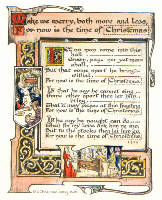 Make we merry, both more and less,
For now is the time of Christemas
Let no man come into this
hall
Groom, page, nor yet marshall,
But that some sport he bring
withal
For now is the time of Christmas
If that he say he cannot sing
Some other sport then let him
bring
That it may please at this feasting
For now is the time of Christmas
If he say he nought can do
Then for my love ask him no mo
But to the stocks then let him go
For now is the time of Christmas